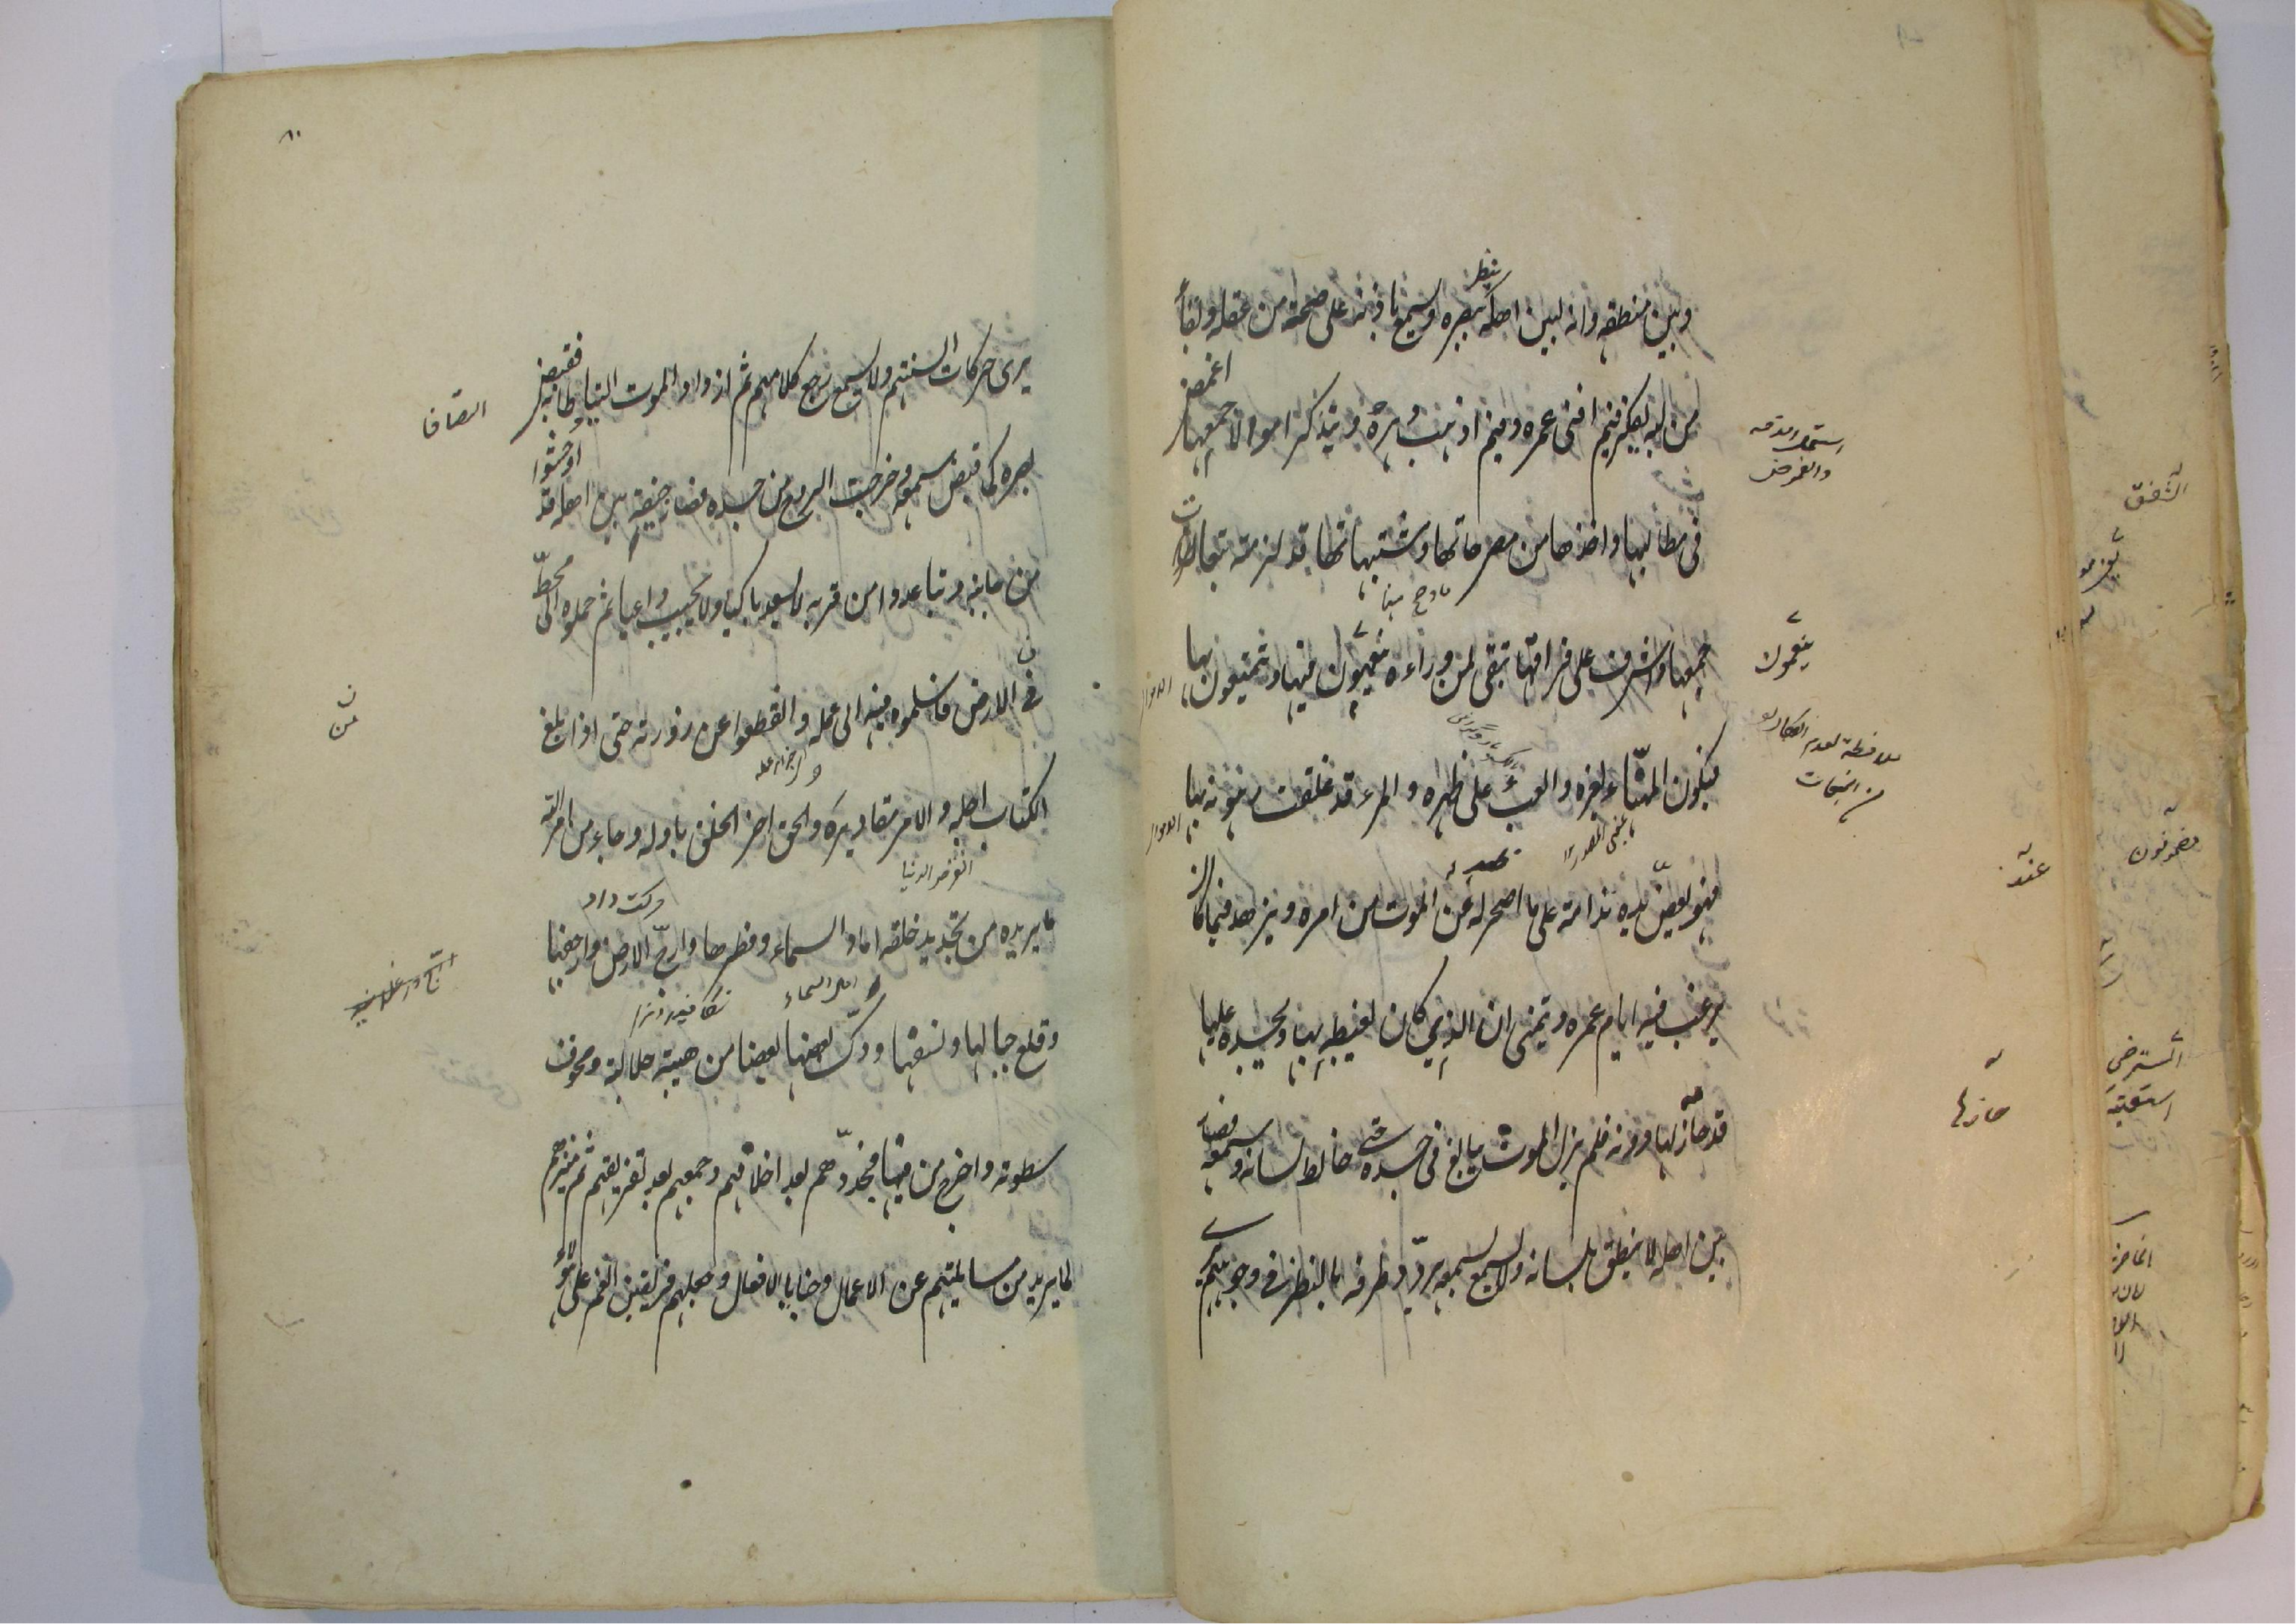 وبين منطقه وانه لبين اهله ينظر ببصره ويسمع باذنه على صحة من عقله وبقاء
من لبه يفكر فيم افنى عمره وفيم اذهب دهره ويتذكر اموالا جمعها اغمض
فى مطالبها واخذها من مصرحاتها ومشتبهاتها قد لزمته تبعات
جمعها واشرف على فراقها تبقى لمن وراءه ينعمون فيها ويتمتعون بها
فيكون المهنأ لغيره والعبء على ظهره والمرء قد غلقت رهونه بها
فهو يعض يده ندامة على ما اصحر له عن الموت من امره ويزهد فيما كان
يرغب فيه ايام عمره ويتمنى ان الذي كان يغبطه بها ويحسده عليها
قد حازها دونه فلم يزل الموت يبالغ فى جسده حتى خالط لسانه وسمعه فصار
بين اهله لا ينطق بلسانه ولا يسمع بسمعه يردد طرفه بالنظر فى وجوههم
ينعمون
عند
حازها
٨٠
يرى حركات السنتهم ولا يسمع رجع كلامهم ثم ازداد الموت التياطا به فقبض
بصره كما قبض سمعه وخرجت الروح من جسده فصار جيفة بين اهله قد اوحشوا
من جانبه وتباعدوا من قربه لا يسعد باكيا ولا يجيب داعيا ثم حملوه الى محطّ
فى الارض فاسلموه فيه الى عمله وانقطعوا عن زورته حتى اذا بلغ
الكتاب اجله والامر مقاديره والحق اخر الخلق باوله وجاء من امر الله
ما يريده من تجديد خلقه اماد السماء وفطرها وارجّ الارض وارجفها
وقلع جبالها ونسفها ودكّ بعضها بعضا من هيبة جلالته ومخوف
سطوته واخرج من فيها فجددهم بعد اخلاقهم وجمعهم بعد تفريقهم ثم ميزهم
لما يريد من مسائلتهم عن الاعمال وخبايا الافعال وجعلهم فريقين انعم على هؤلاء
التصاقا
من